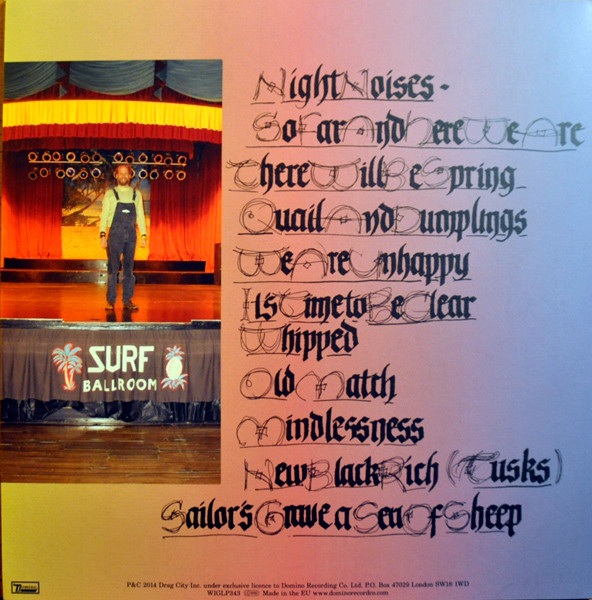 Night Noises -
So Far And Here We Are
There Will Be Spring
Quail And Dumplings
We Are Unhappy
It's Time to Be Clear
Whipped
Old Match
Mindlessness
New Black Rich (Tusks)
Sailor's Grave a Sea Of Sheep
SURF
BALLROOM
P&C 2014 Drag City Inc. under exclusive licence to Domino Recording Co. Ltd. P.O. Box 47029 London SW18 1WD
WIGLP343 Made in the EU www.dominorecordco.com